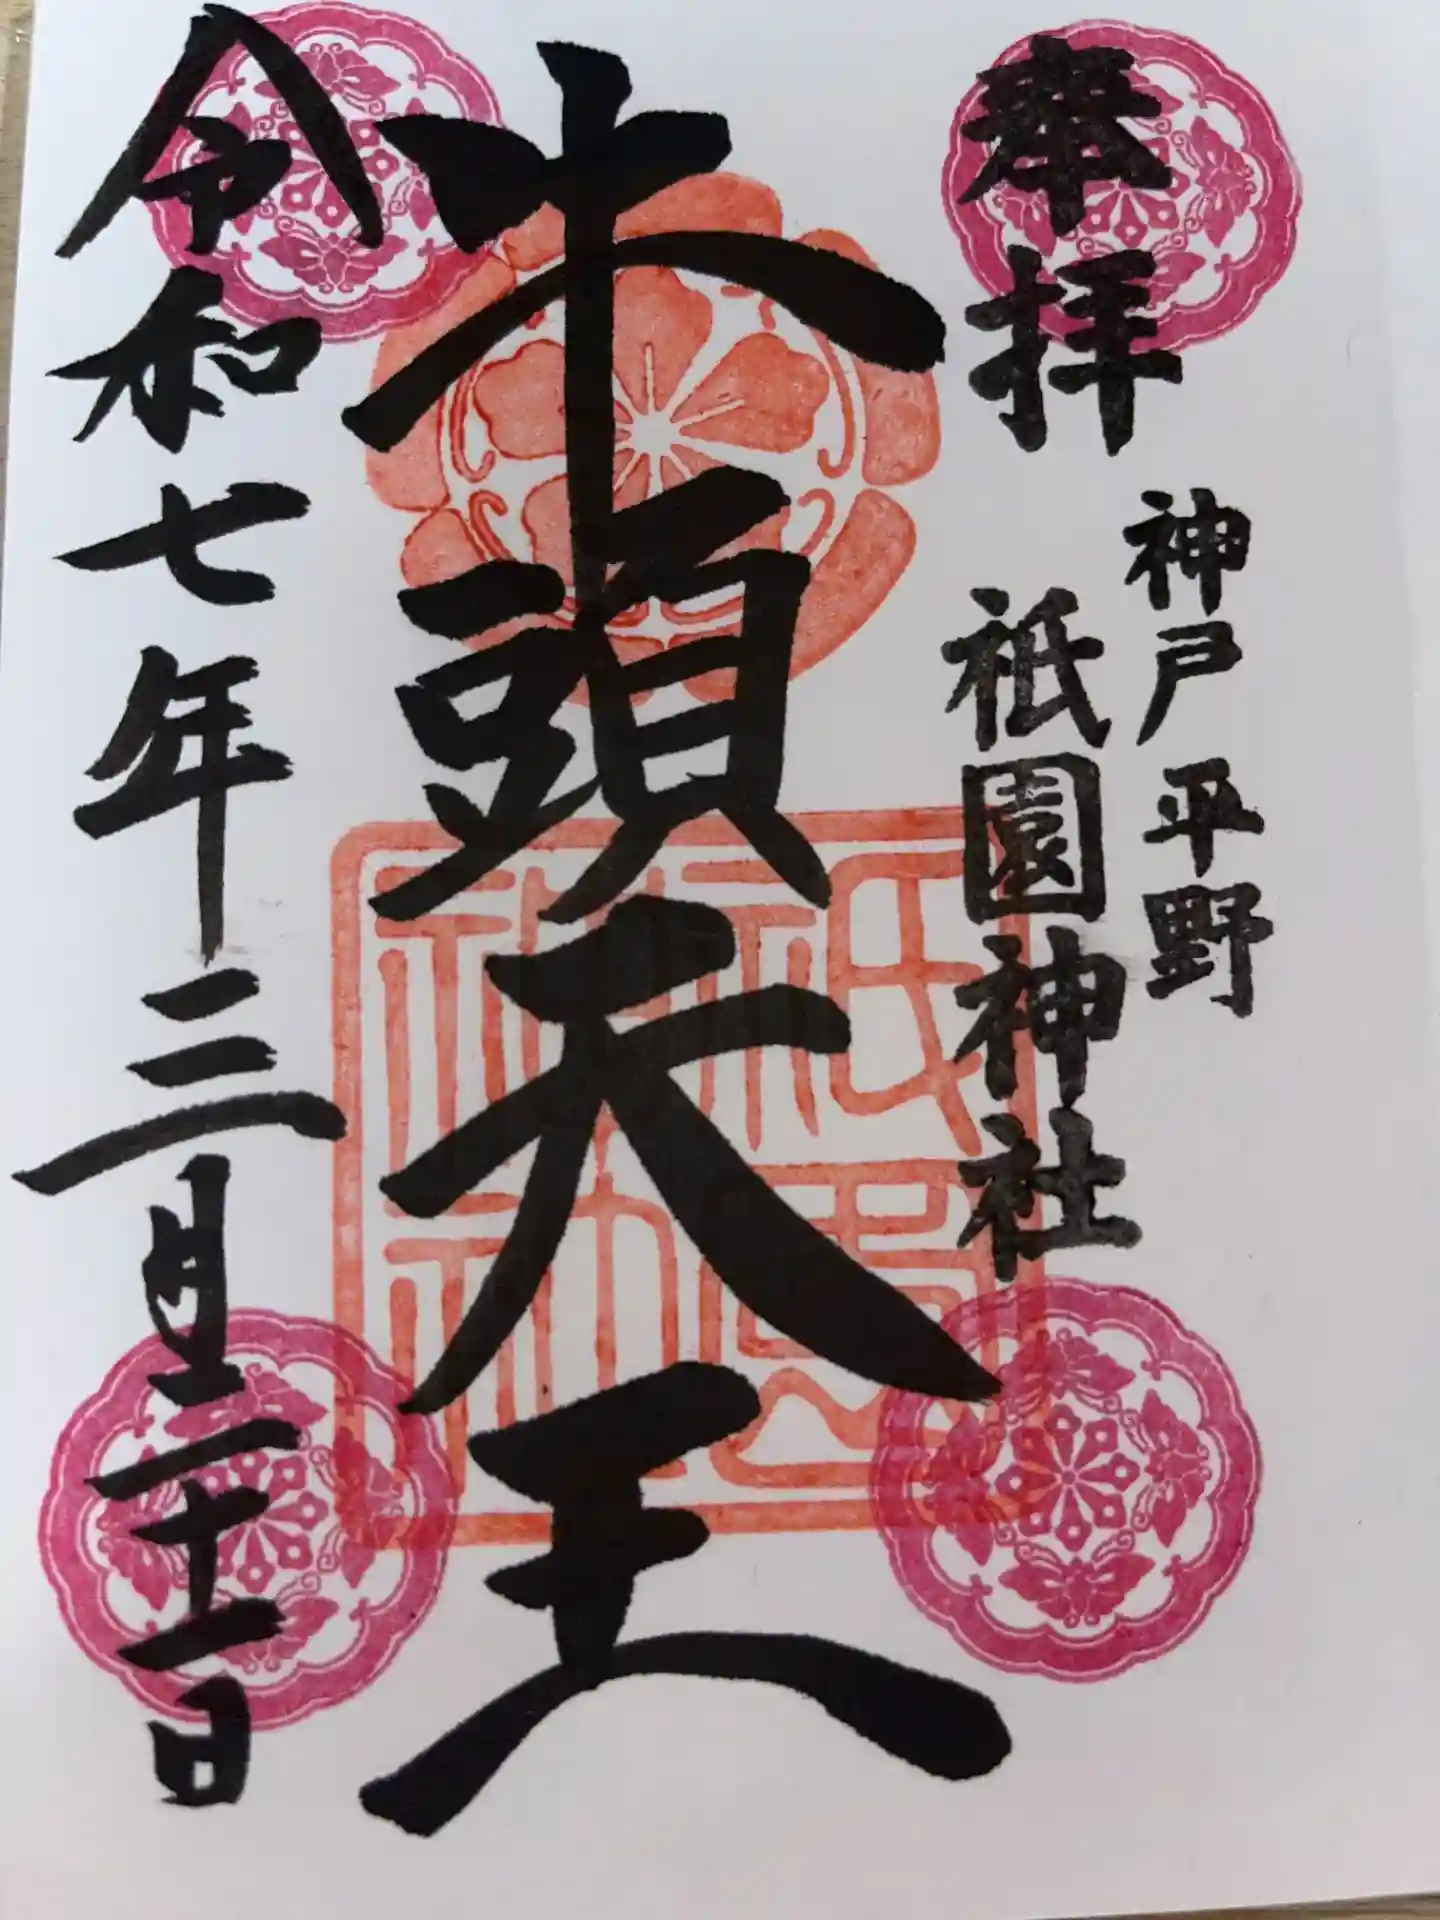 奉拝
神戸 平野
祇園神社
牛頭天王
祇園
神社
令和七年三月二十一日